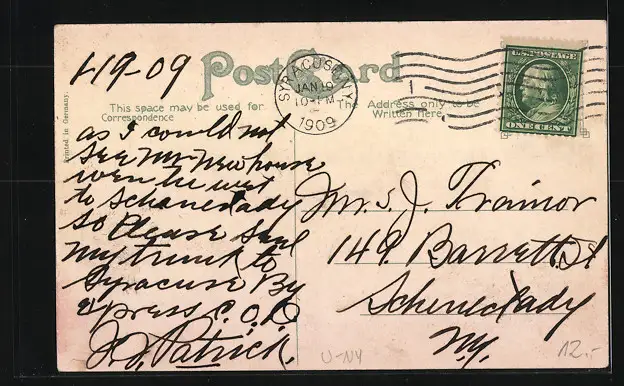 1/19-09
Post Card
SYRACUSE, N.Y.
JAN 19
10-PM
1909
U.S. POSTAGE
ONE CENT
This space may be used for
Correspondence
The Address only to be
Written here.
Printed in Germany.
as I could not
see Mr. Newhouse
wen he wet
to Schanectady
so Please Send
my trunk to
Syracuse By
express C.O.D
J. Patrick.
Mr. J. Trainor
149 Barrett St
Schenectady
N.Y.
U-NY
12.-